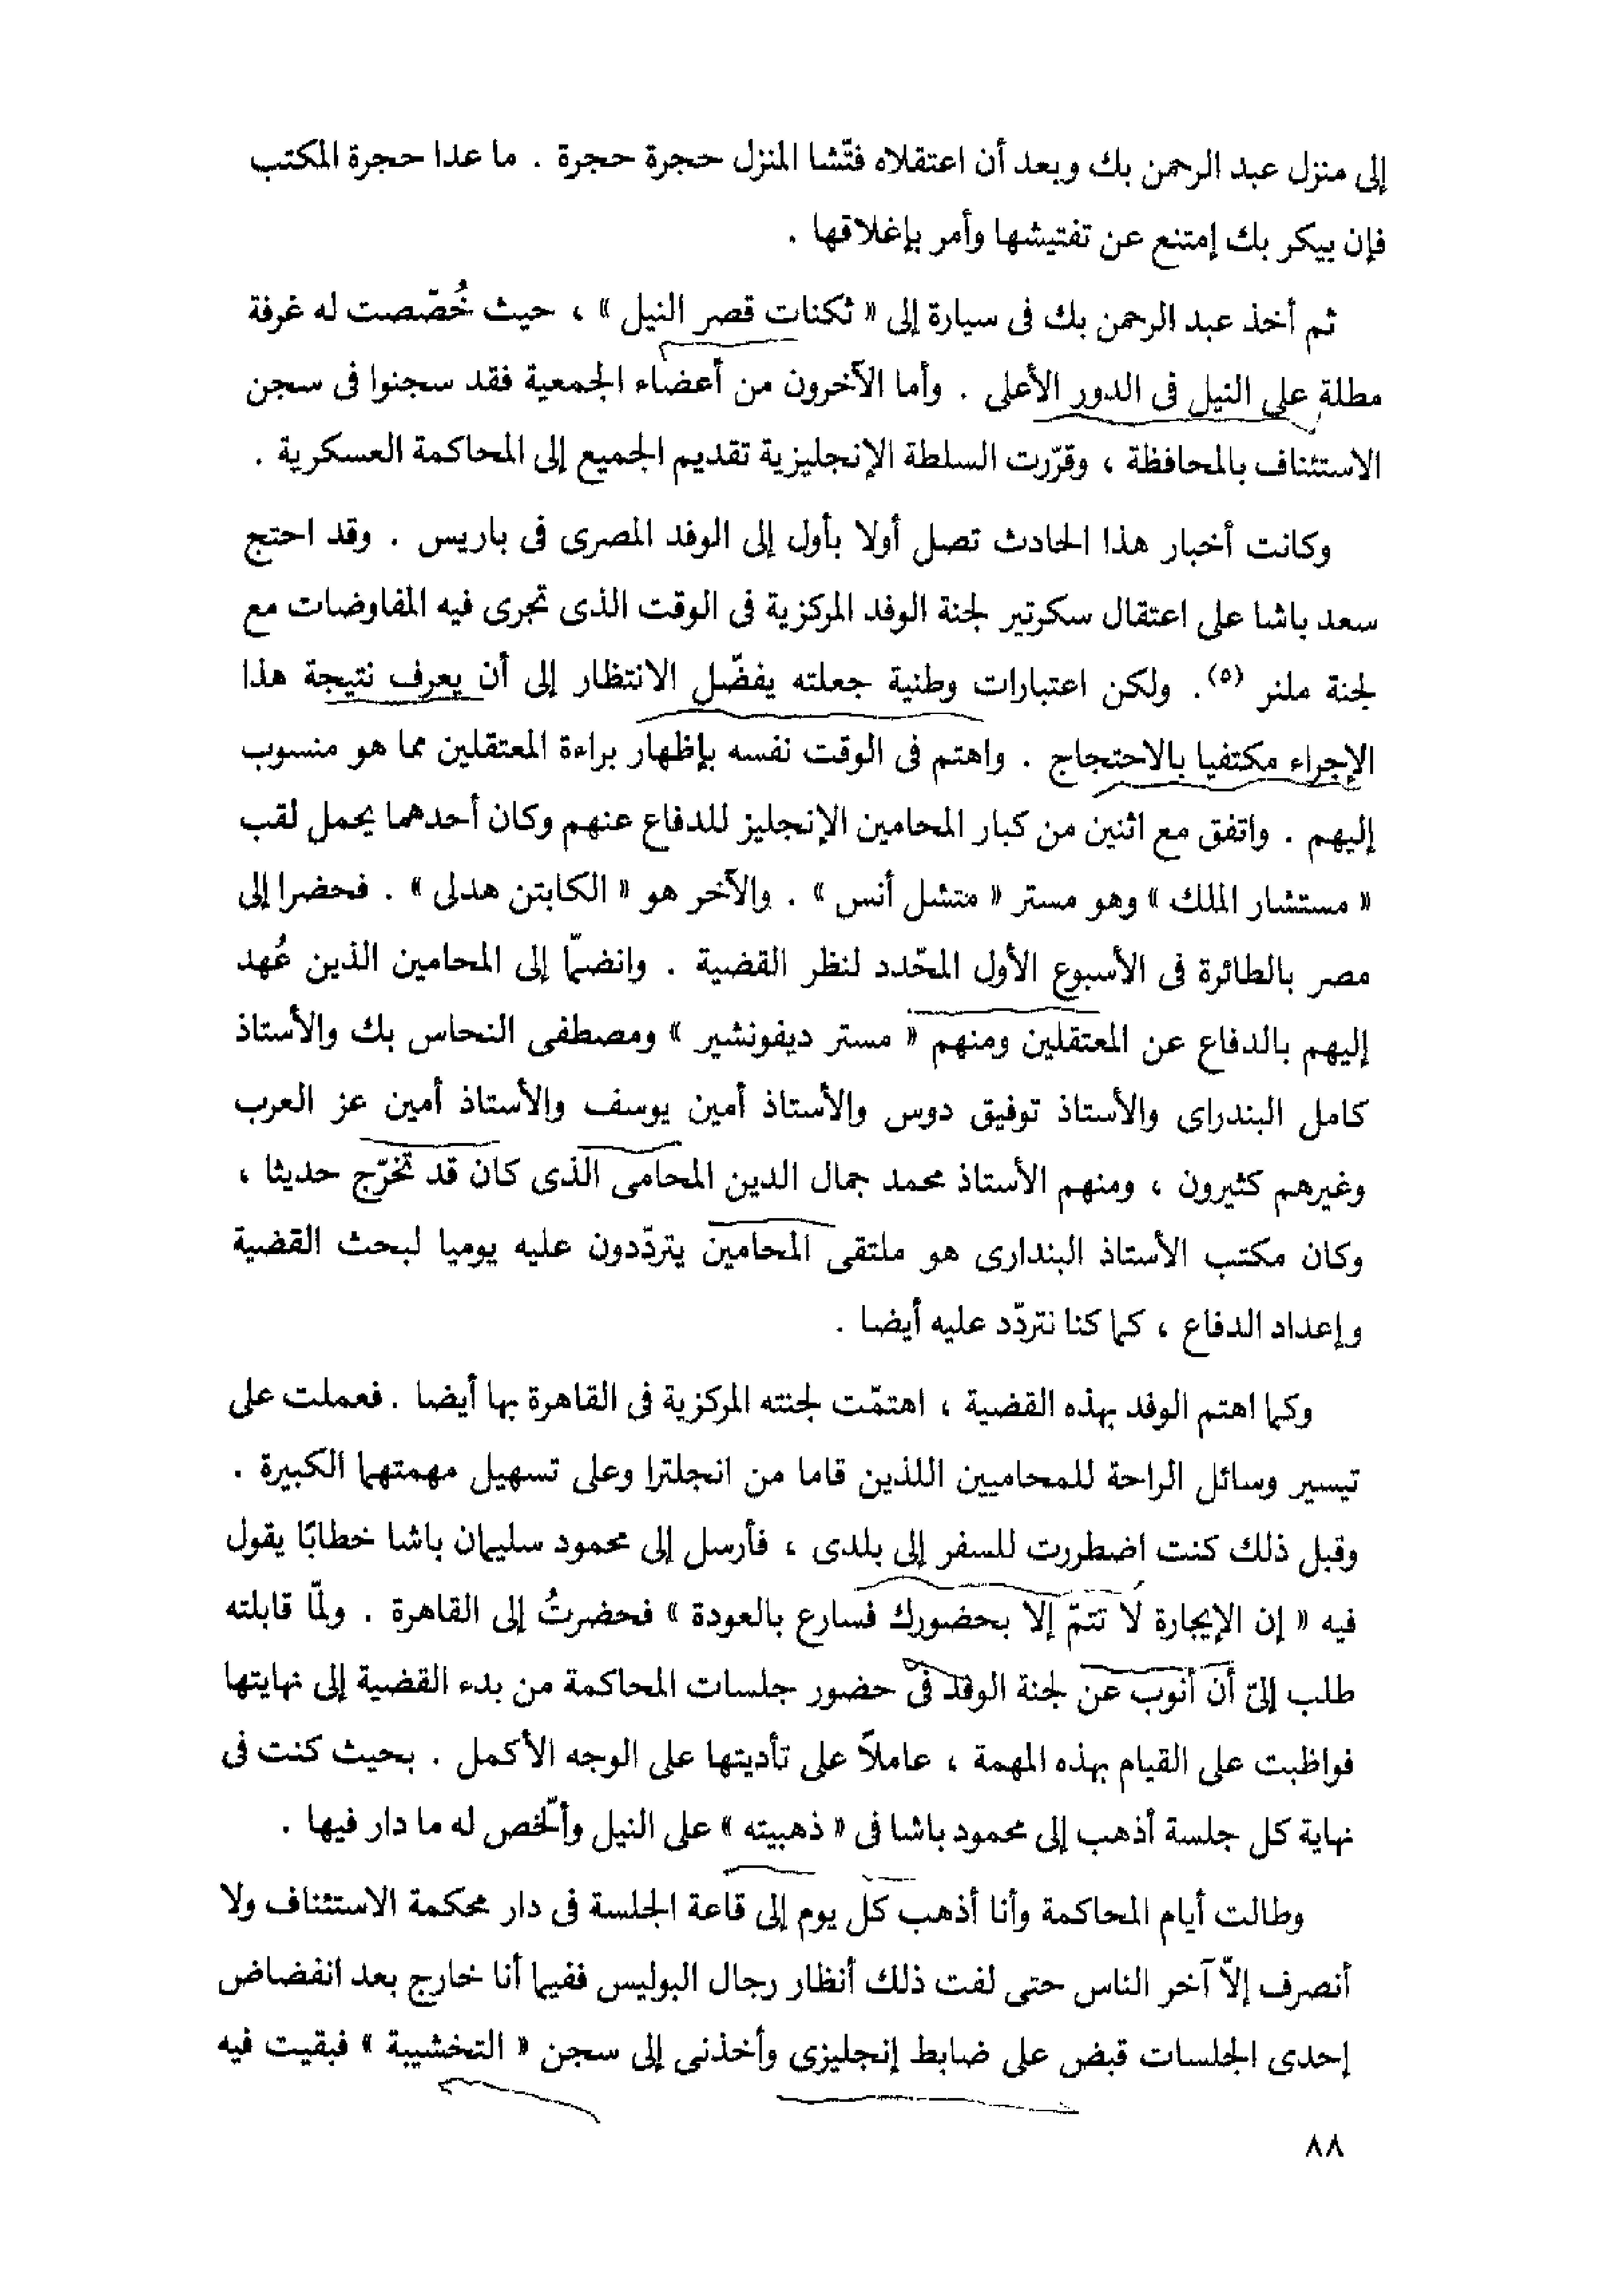 إلى منزل عبد الرحمن بك وبعد أن اعتقلاه فتّشا المنزل حجرة حجرة . ما عدا حجرة المكتب
فإن بيكر بك إمتنع عن تفتيشها وأمر بإغلاقها .
ثم أخذ عبد الرحمن بك فى سيارة إلى « ثكنات قصر النيل » ، حيث خُصّصت له غرفة
مطلة على النيل فى الدور الأعلى . وأما الآخرون من أعضاء الجمعية فقد سجنوا فى سجن
الاستئناف بالمحافظة ، وقرّرت السلطة الإنجليزية تقديم الجميع إلى المحاكمة العسكرية .
وكانت أخبار هذا الحادث تصل أولا بأول إلى الوفد المصرى فى باريس . وقد احتج
سعد باشا على اعتقال سكرتير لجنة الوفد المركزية فى الوقت الذى تجرى فيه المفاوضات مع
لجنة ملنر (٥). ولكن اعتبارات وطنية جعلته يفضّل الانتظار إلى أن يعرف نتيجة هذا
الإجراء مكتفيا بالاحتجاج . واهتم فى الوقت نفسه بإظهار براءة المعتقلين مما هو منسوب
إليهم . واتفق مع اثنين من كبار المحامين الإنجليز للدفاع عنهم وكان أحدهما يحمل لقب
« مستشار الملك » وهو مستر « متشل أنس » . والآخر هو « الكابتن هدلى » . فحضرا إلى
مصر بالطائرة فى الأسبوع الأول المحّدد لنظر القضية . وانضمّا إلى المحامين الذين عُهد
إليهم بالدفاع عن المعتقلين ومنهم « مستر ديفونشير » ومصطفى النحاس بك والأستاذ
كامل البندراى والأستاذ توفيق دوس والأستاذ أمين يوسف والأستاذ أمين عز العرب
وغيرهم كثيرون ، ومنهم الأستاذ محمد جمال الدين المحامى الذى كان قد تخرّج حديثا ،
وكان مكتب الأستاذ البندارى هو ملتقى المحامين يتردّدون عليه يوميا لبحث القضية
وإعداد الدفاع ، كما كنا نتردّد عليه أيضا .
وكما اهتم الوفد بهذه القضية ، اهتمّت لجنته المركزية فى القاهرة بها أيضا . فعملت على
تيسير وسائل الراحة للمحاميين اللذين قاما من انجلترا وعلى تسهيل مهمتهما الكبيرة .
وقبل ذلك كنت اضطررت للسفر إلى بلدى ، فأرسل إلى محمود سليمان باشا خطابًا يقول
فيه « إن الإيجارة لا تتمّ إلا بحضورك فسارع بالعودة » فحضرتُ إلى القاهرة . ولمّا قابلته
طلب إلىّ أن أنوب عن لجنة الوفد فى حضور جلسات المحاكمة من بدء القضية إلى نهايتها
فواظبت على القيام بهذه المهمة ، عاملاً على تأديتها على الوجه الأكمل . بحيث كنت فى
نهاية كل جلسة أذهب إلى محمود باشا فى « ذهبيته » على النيل وألّخص له ما دار فيها .
وطالت أيام المحاكمة وأنا أذهب كل يوم إلى قاعة الجلسة فى دار محكمة الاستئناف ولا
أنصرف إلاّ آخر الناس حتى لفت ذلك أنظار رجال البوليس ففيما أنا خارج بعد انفضاض
إحدى الجلسات قبض على ضابط إنجليزى وأخذنى إلى سجن « التخشيبة » فبقيت فيه
٨٨